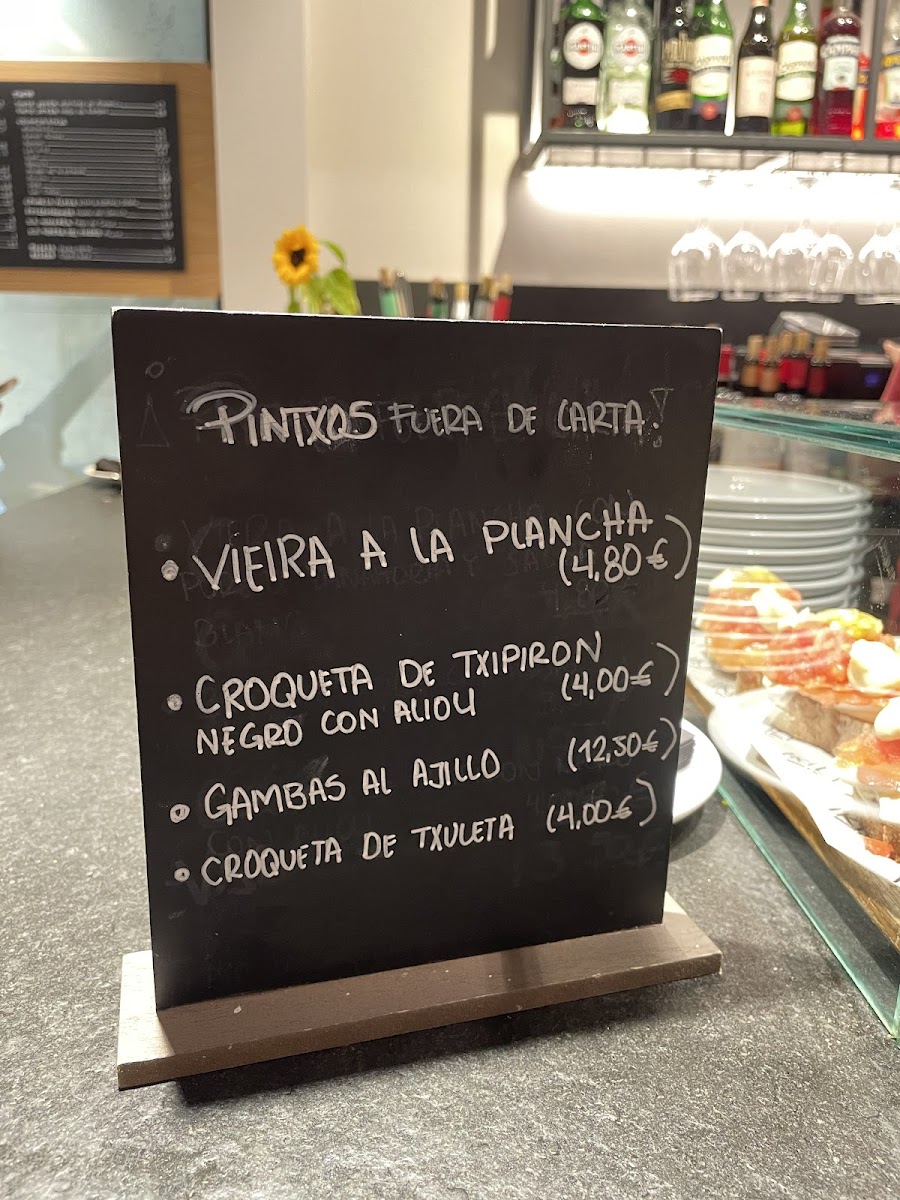 PINTXOS FUERA DE CARTA!
• VIEIRA A LA PLANCHA
(4,80€)
• CROQUETA DE TXIPIRON
NEGRO CON ALIOLI (4,00€)
• GAMBAS AL AJILLO (12,50€)
• CROQUETA DE TXULETA (4,00€)